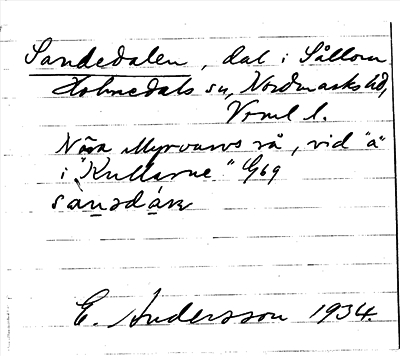 Sandedalen, dal i Sållom
Holmedals sn, Nordmarks hd,
Vrml l.
Nära Myrvarvs rå, vid "a"
i "Kullarne" G69
E. Andersson 1934.